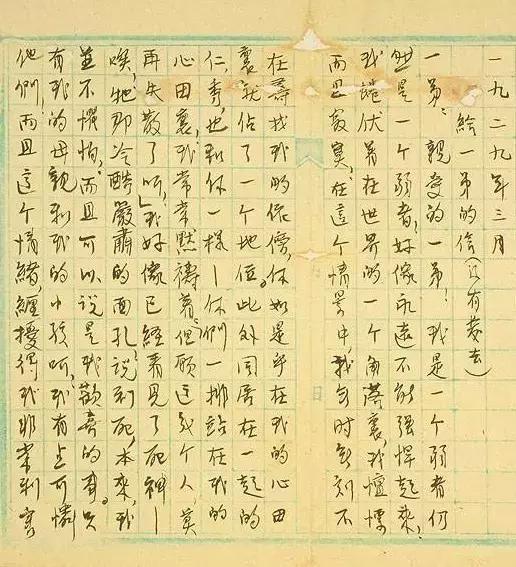 一九二九年三月
給一弟的信(只有發去)
一弟,親愛的一弟!我是一個弱者何
是一个弱者,好像永遠不能强悍起來,
我蜷伏着在世界的一个角落裏,我
而且寂寞,在這个情景中,我無时無刻不
在尋找我的信僚,你如是乎在我的心田
裏就佔了一个地位。此外同居在一起的
仁,秀,也和你一樣—你們一排站在我的
心田裏,我常常默禱着:但願這幾个人,莫
再失散了吶!我好像已經看見了死神—
唉,牠那冷酷嚴肅的面孔,說到死,本來,我
並不懼怕,而且可以說是我歡喜的事。只
有我的母親和我的小孩呵,我有点可憐
他們,而且這个情緒,纏擾得我非常利害,